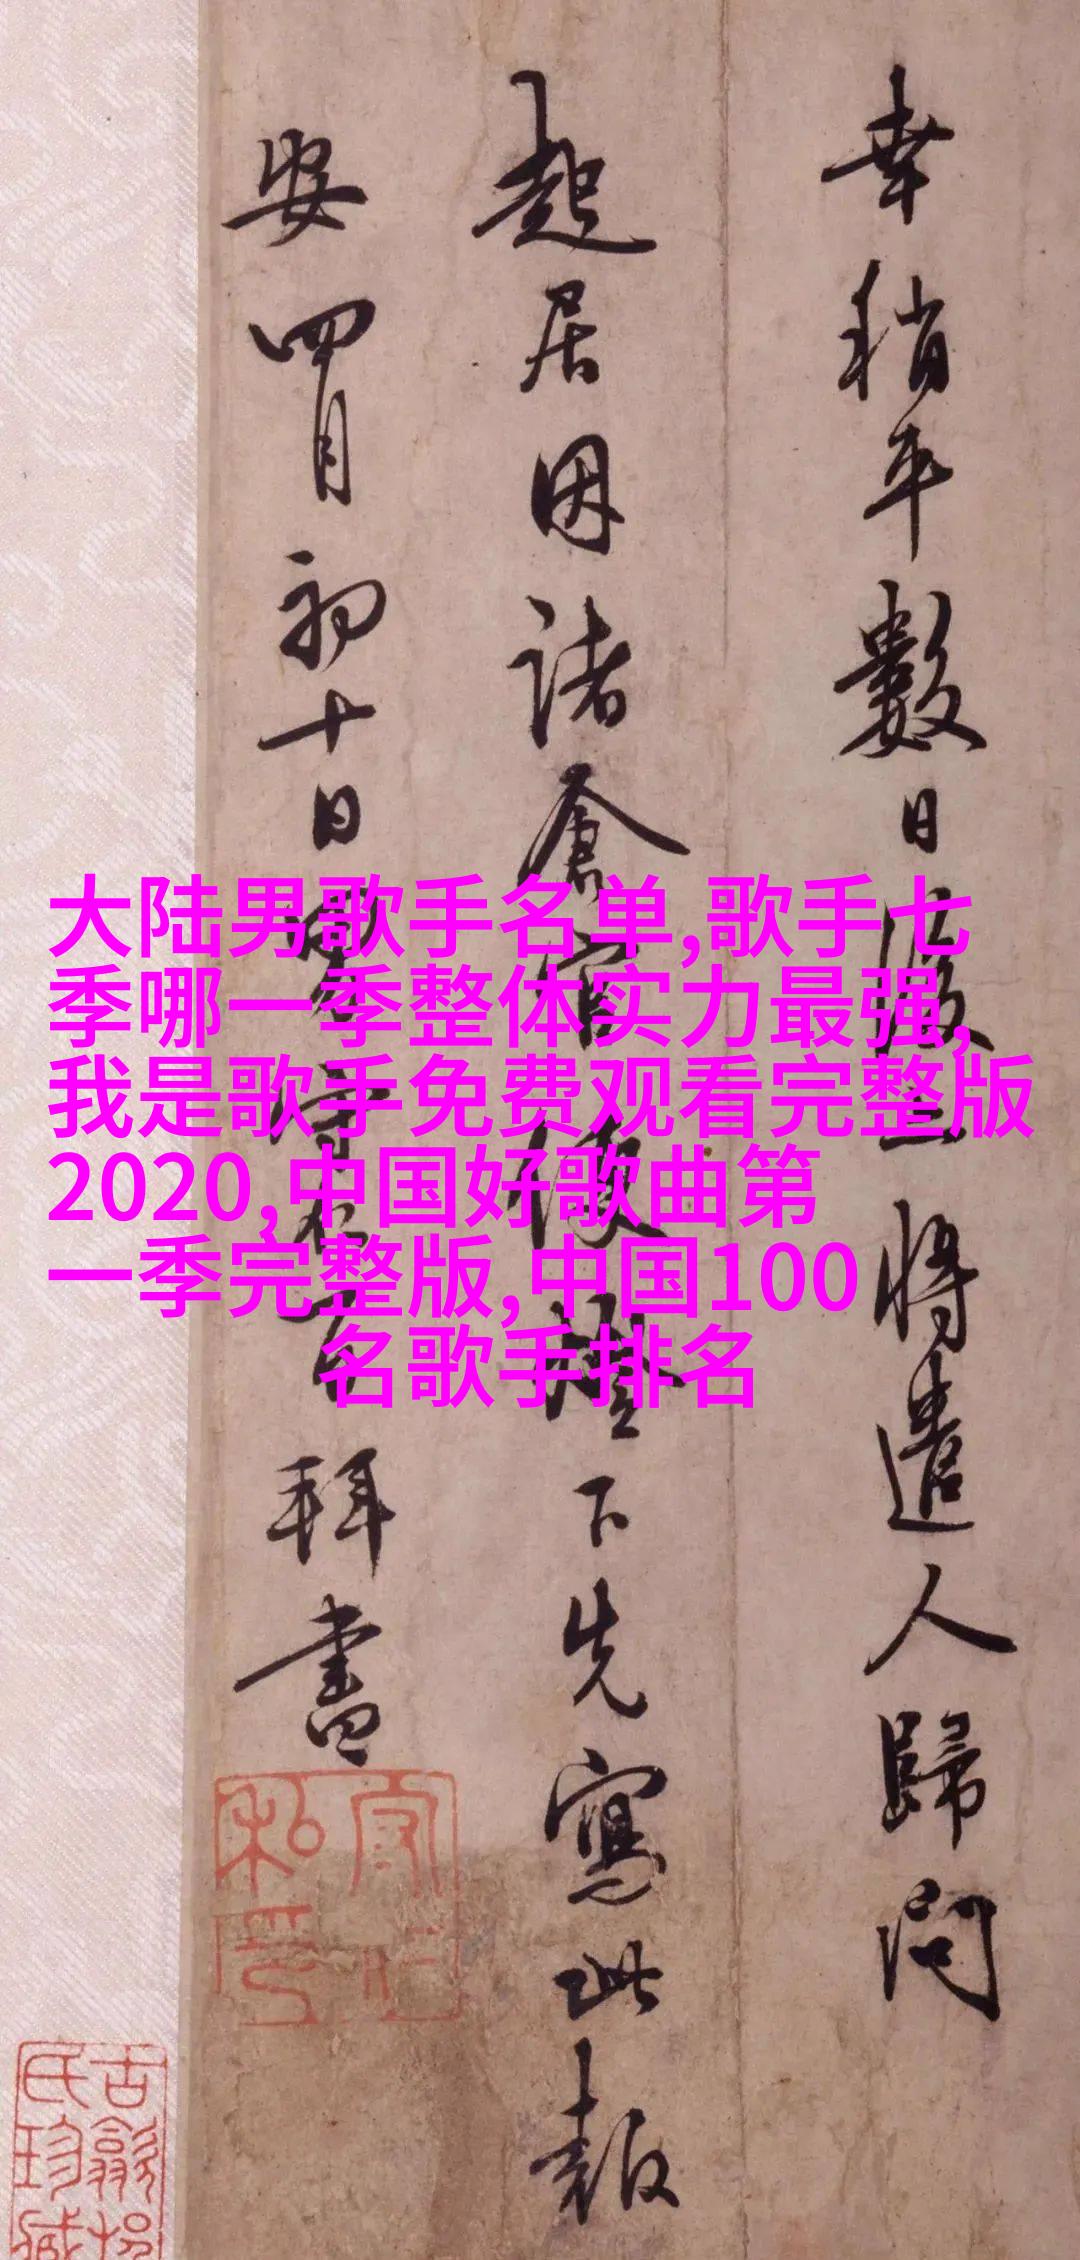 大陆男歌手名单,歌手七
季哪一季整体实力最强,
我是歌手免费观看完整版
2020,中国好歌曲第
一季完整版,中国100
名歌手排名
幸稍平數日後將遣人歸問
起居因諸倉官便燈下先寫此報
安四月初十日男百拜書
私印
氏珍藏